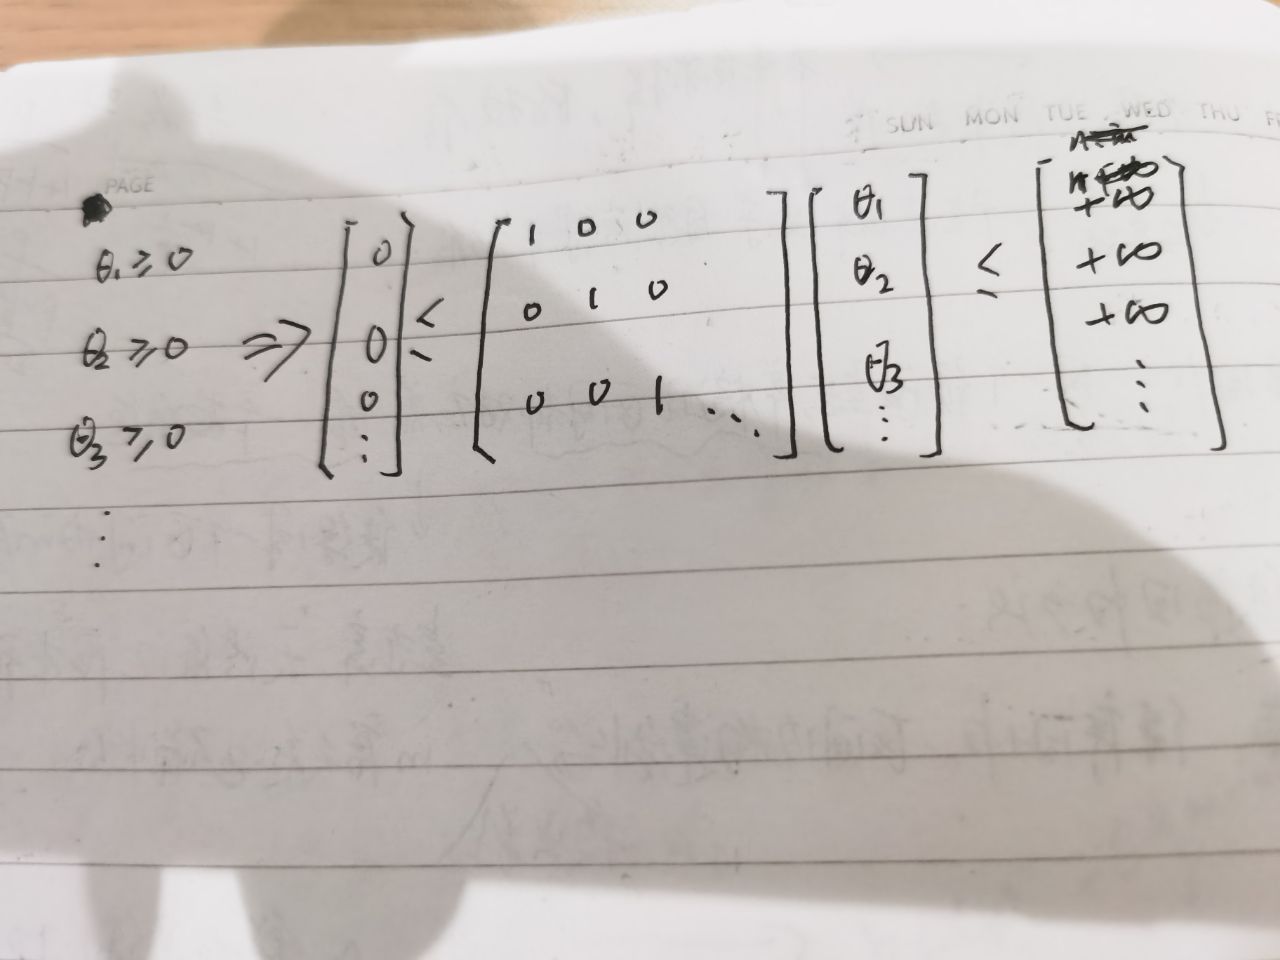 SUN MON TUE WED THU
PAGE
θ₁ ≥ 0
θ₂ ≥ 0
θ₃ ≥ 0
⋮
⇒
[0 0 0 ⋮] ≤ [1 0 0
0 1 0
0 0 1 ⋱] [θ₁ θ₂ θ₃ ⋮] ≤ [+∞ +∞ +∞ ⋮]